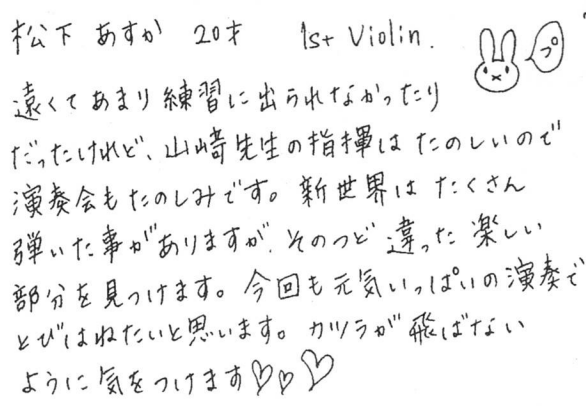 松下 あすか 20才 1st Violin. プ
遠くてあまり練習に出られなかったり
だったけれど、山崎先生の指揮はたのしいので
演奏会もたのしみです。新世界はたくさん
弾いた事がありますが、そのつど違った楽しい
部分を見つけます。今回も元気いっぱいの演奏で
とびはねたいと思います。カツラが飛ばない
ように気をつけます♡♡♡